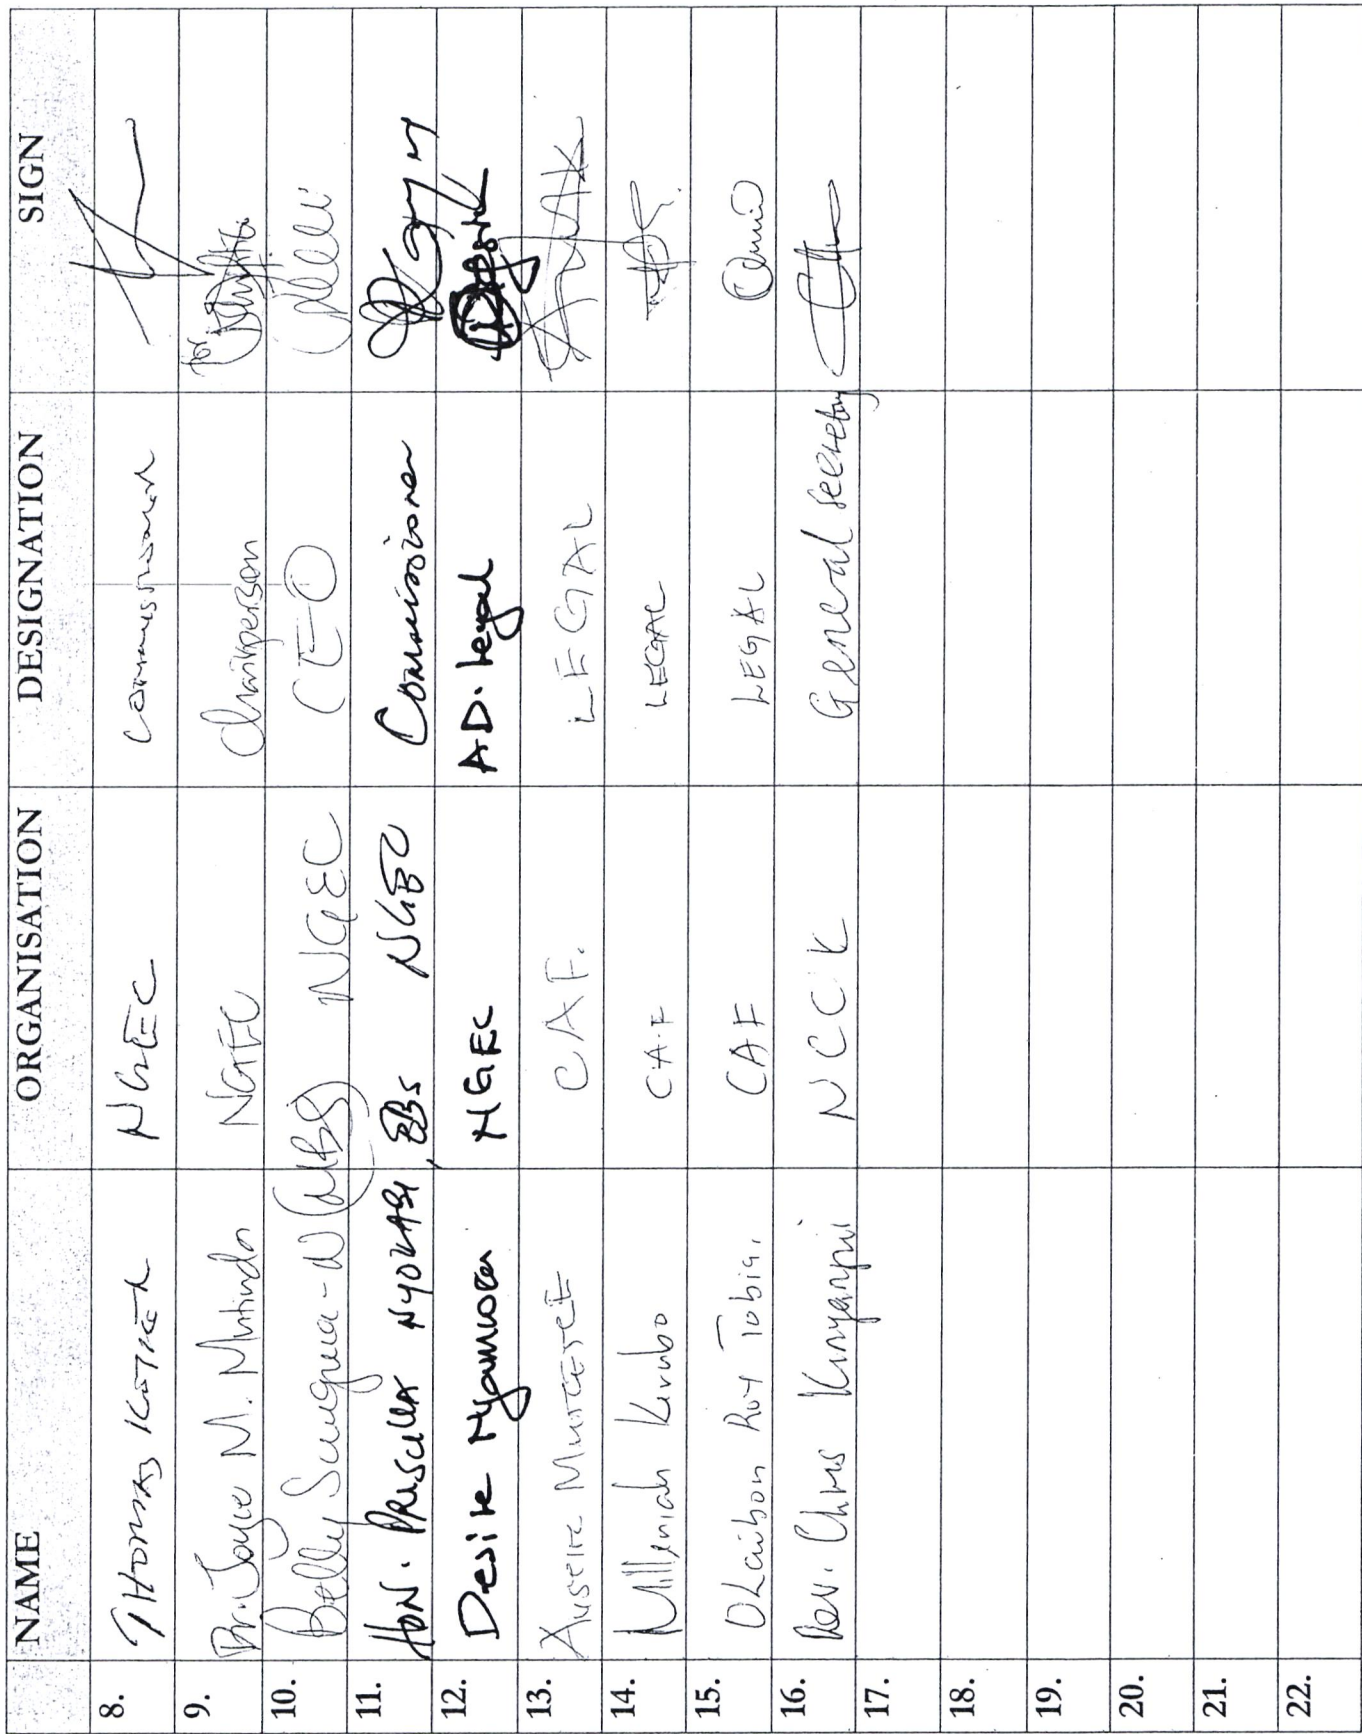 NAME ORGANISATION DESIGNATION SIGN
8. THOMAS NGEC Commissioner
9. Dr. Joyce M. Mutinda NGEC Chairperson for
10. Betty Sungura-N (MBS) NGEC CEO
11. HON. PRISCILLA NYOKABI, EBS NGEC Commissioner
12. Desire Nyamwea NGEC AD. Legal
13. CAF. LEGAL
14. Milleniah Kerubo CAF LEGAL
15. Roy Tobias CAF LEGAL
16. Rev. Chris Kinyanjui NCCK General Secretary
17.
18.
19.
20.
21.
22.